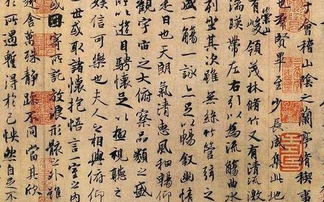 會稽山陰之蘭亭脩禊事
也群賢畢至少長咸集此
有崇山峻領茂林脩竹又有清流激
湍暎帶左右引以為流觴曲水
列坐其次雖無絲竹管弦之
盛一觴一詠亦足以暢敘幽情
是日也天朗氣清惠風和暢仰
觀宇宙之大俯察品類之盛
所以遊目騁懷足以極視聽之
娛信可樂也夫人之相與俯仰
一世或取諸懷抱悟言一室之內
或因寄所託放浪形骸之外雖
趣舍萬殊靜躁不同當其欣
於所遇蹔得於己怏然自足不